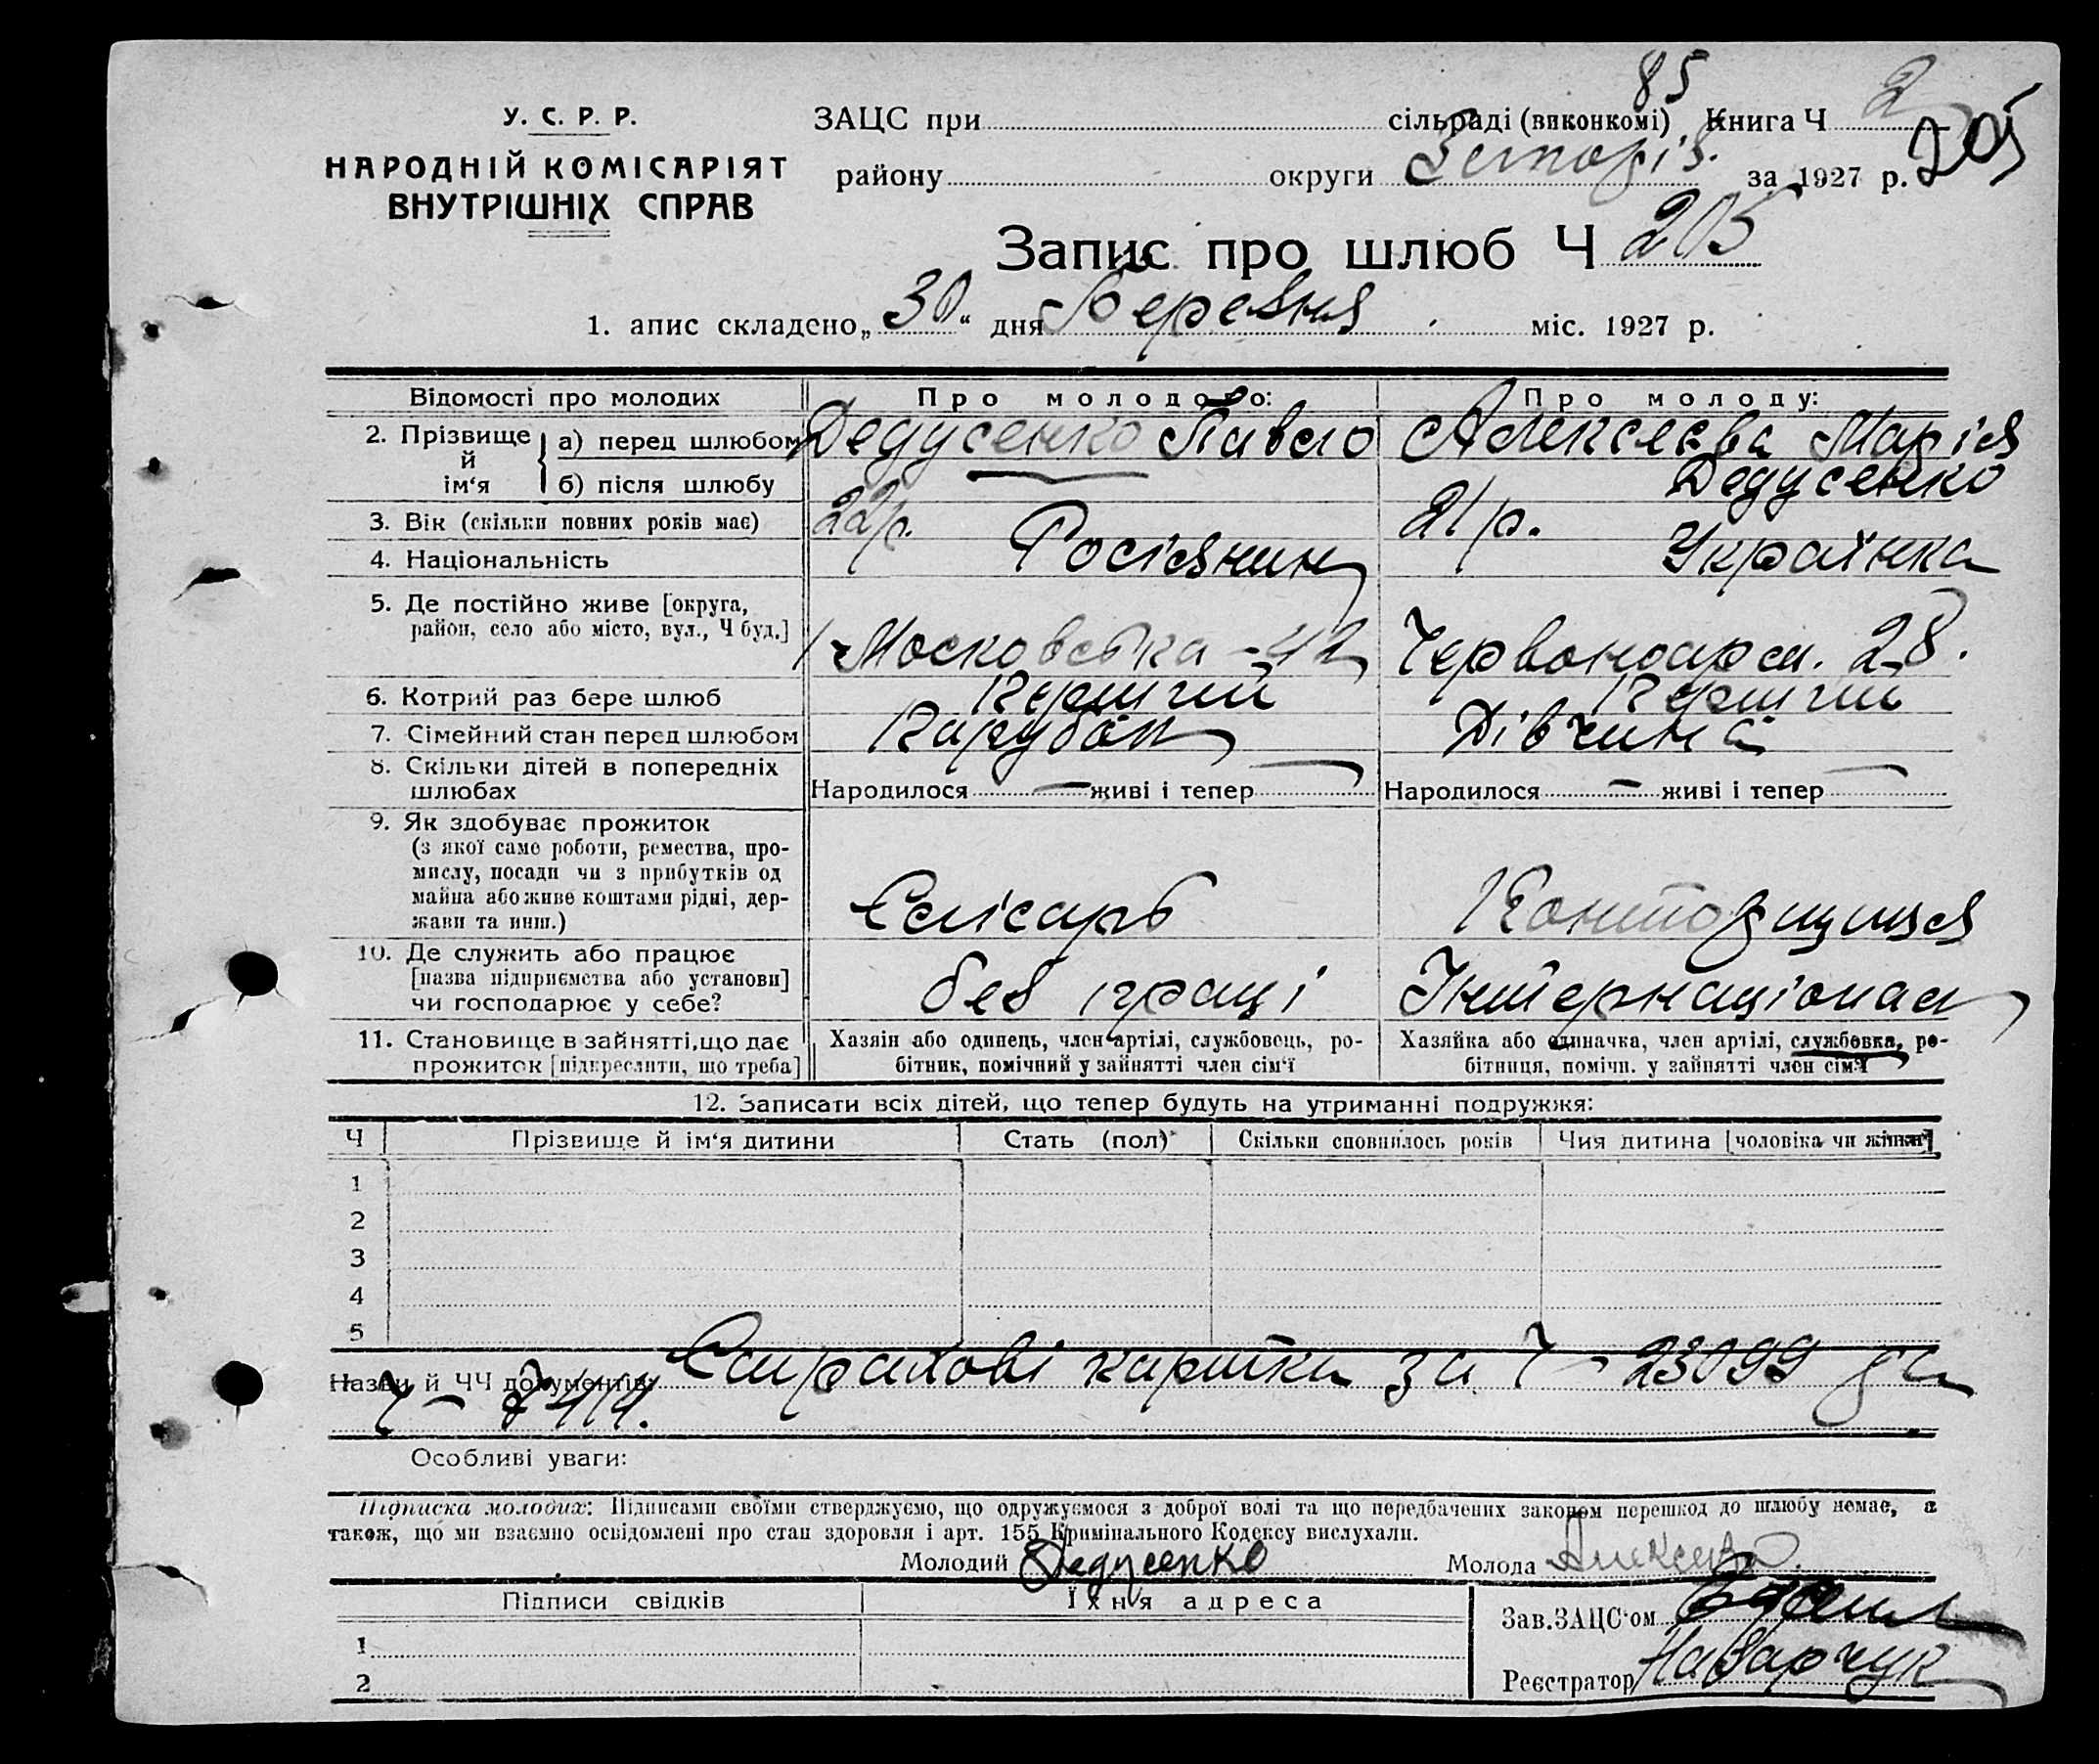 85
У. С. Р. Р.
НАРОДНІЙ КОМІСАРІЯТ
ВНУТРІШНІХ СПРАВ
ЗАЦС при сільраді (виконкомі) Книга Ч 2
205
району округи за 1927 р.
Запис про шлюб Ч 205
1. апис складено „30“ дня Березня міс. 1927 р.
Відомості про молодих Про молодого: Про молоду:
2. Прізвище й ім‘я а) перед шлюбом Дедусенко Павло Алексєєва Марія
б) після шлюбу Дедусенко
3. Вік (скільки повних років має) 22 р. 21 р.
4. Національність Росіянин Українка
5. Де постійно живе [округа,
район, село або місто, вул., Ч буд.] Московська - 42 Червоноарм. 28.
6. Котрий раз бере шлюб Перший Перший
7. Сімейний стан перед шлюбом Парубок Дівчина
8. Скільки дітей в попередніх
шлюбах Народилося — живі і тепер — Народилося — живі і тепер —
9. Як здобуває прожиток
(з якої саме роботи, ремества, про-
мислу, посади чи з прибутків од
майна або живе коштами рідні, дер-
жави та инш.) Слісарь Конторщиця
10. Де служить або працює
[назва підприємства або установи]
чи господарює у себе? без праці Інтернаціонал
11. Становище в зайнятті, що дає
прожиток [підкреслити, що треба]
Хазяін або одинець, член артілі, службовець, ро-
бітник, помічний у зайнятті член сім‘ї
Хазяйка або одиначка, член артілі, службовка, ро-
бітниця, помічн. у зайнятті член сім‘ї
12. Записати всіх дітей, що тепер будуть на утриманні подружжя:
Ч Прізвище й ім‘я дитини Стать (пол) Скільки сповнилось років Чия дитина [чоловіка чи жінки]
1
2
3
4
5
Назви й ЧЧ документів: Страхові картки за Ч - 23099 да
Ч - 7414.
Особливі уваги:
Підписка молодих: Підписами своїми стверджуємо, що одружуємося з доброї волі та що передбачених законом перешкод до шлюбу немає, а
також, що ми взаємно освідомлені про стан здоровля і арт. 155 Кримінального Кодексу вислухали.
Молодий Дедусенко Молода Алексеева
Підписи свідків Їхня адреса
Зав. ЗАЦС‘ом
1
Реєстратор Назарчук
2